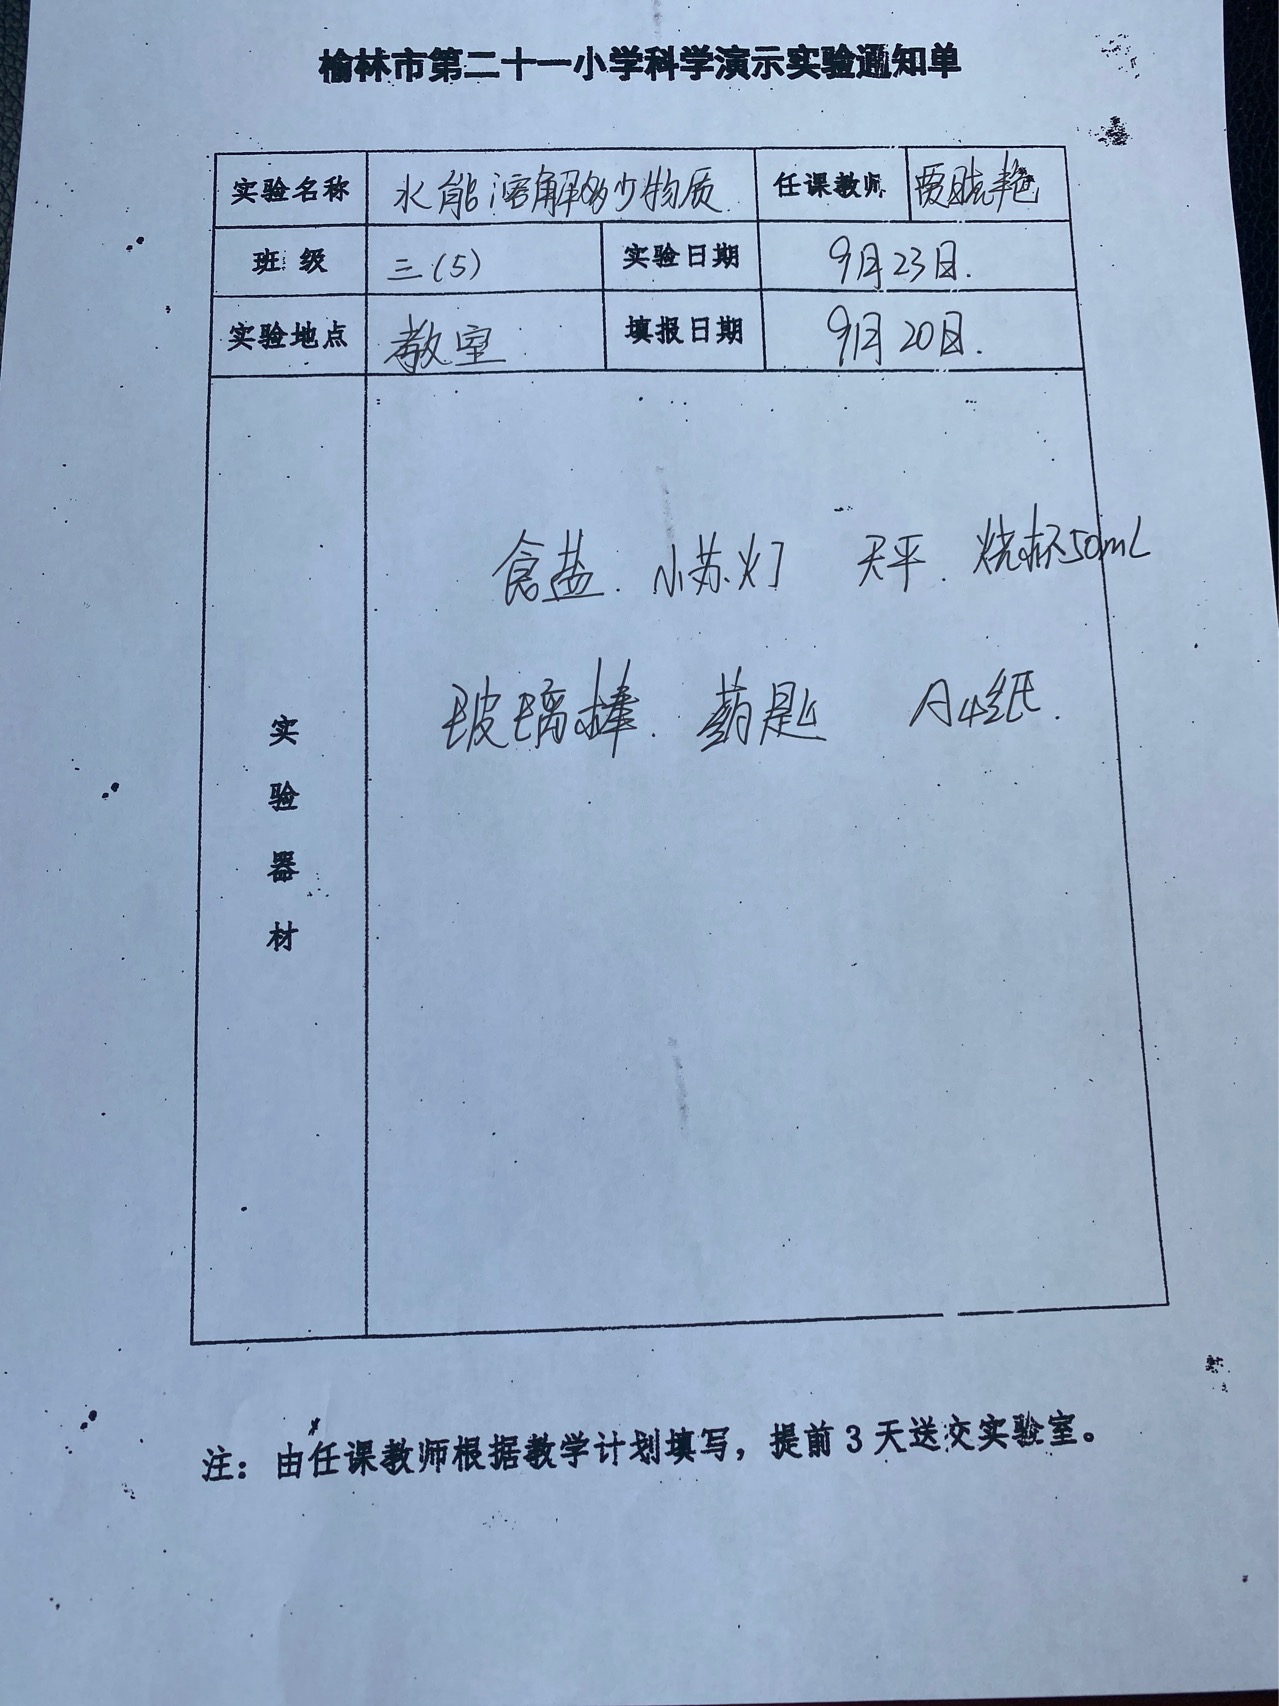 榆林市第二十一小学科学演示实验通知单
实验名称 水能溶解多少物质 任课教师 贾晓艳
班级 三(5) 实验日期 9月23日.
实验地点 教室 填报日期 9月20日.
实验器材
食盐. 小苏灯 天平. 烧杯50mL
玻璃棒. 药匙 A4纸.
注：由任课教师根据教学计划填写，提前3天送交实验室。